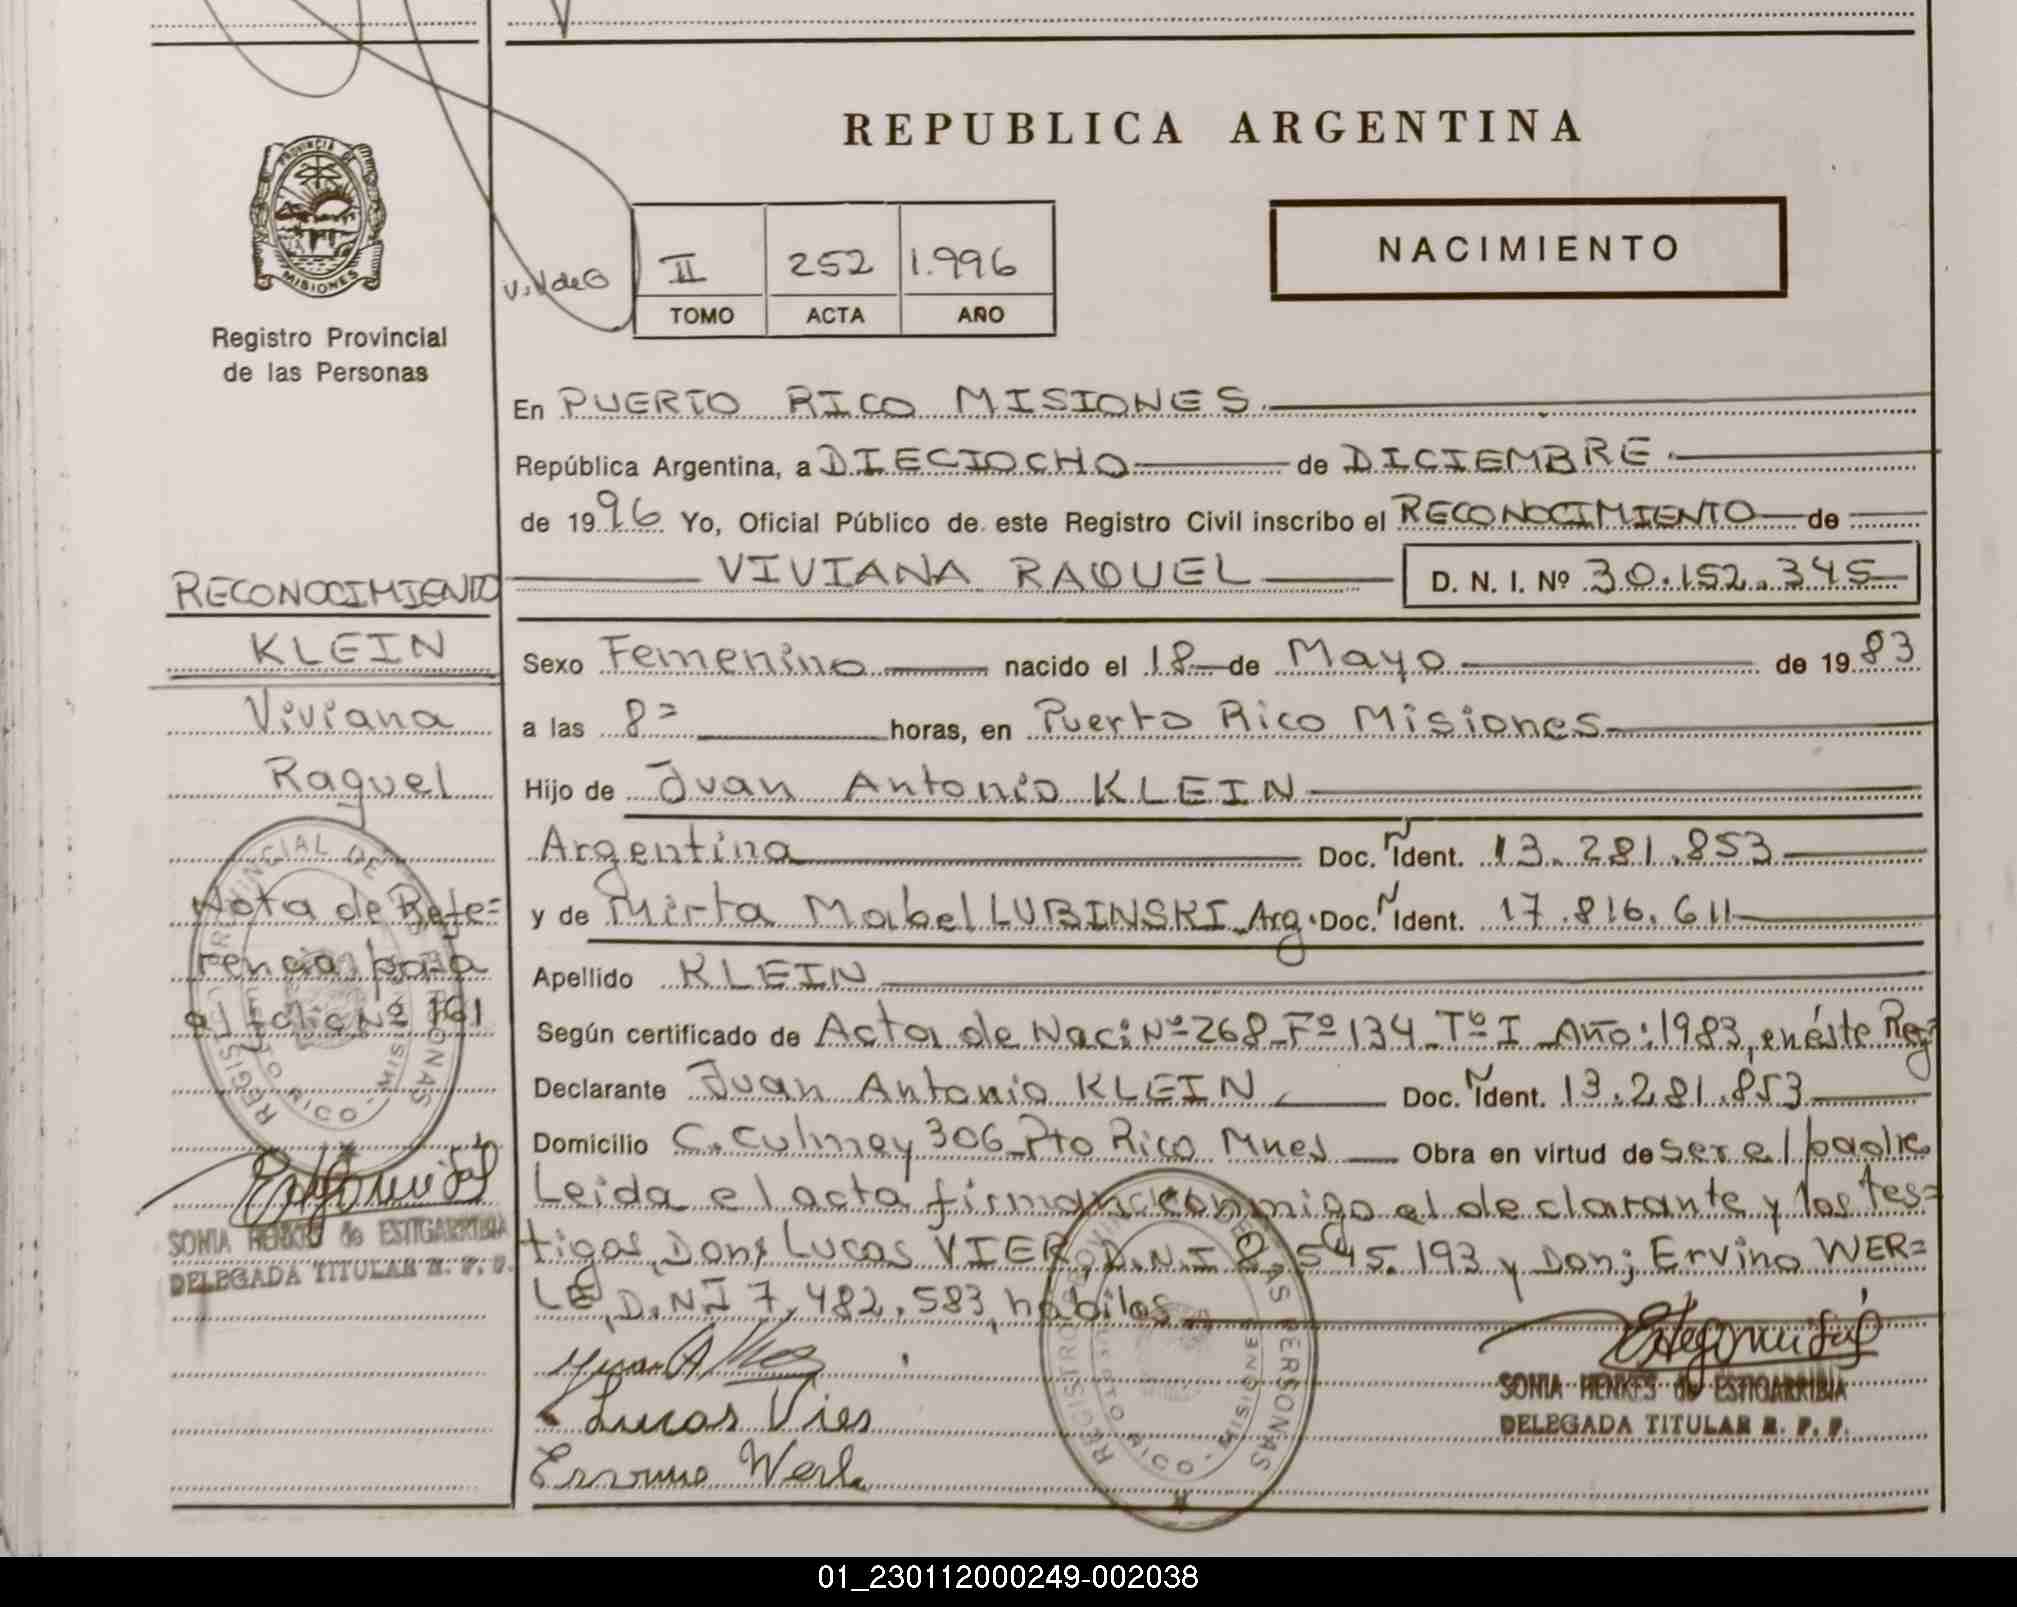 REPUBLICA ARGENTINA
PROVINCIA DE
MISIONES
Registro Provincial
de las Personas
II 252 1.996
TOMO ACTA AÑO
NACIMIENTO
En PUERTO RICO MISIONES
República Argentina, a DIECIOCHO de DICIEMBRE
de 1996 Yo, Oficial Público de este Registro Civil inscribo el RECONOCIMIENTO de
VIVIANA RAQUEL D. N. I. Nº 30.152.345
Sexo Femenino nacido el 18 de Mayo de 1983
a las 8= horas, en Puerto Rico Misiones
Hijo de Juan Antonio KLEIN
Argentina Doc. Ident. 13.281.853
y de Mirta Mabel LUBINSKI Arg. Doc. Ident. 17.816.611
Apellido KLEIN
Según certificado de Acta de Nac: Nº 268 Fº 134 Tº I Año: 1983, en éste Reg=
Declarante Juan Antonio KLEIN Doc. Ident. 13.281.853
Domicilio C. Culmey 306 Pto Rico Mnes Obra en virtud de ser el padre
Leida el acta firman conmigo el declarante y los tes=
tigos, Don; Lucas VIER, D.N.I 8.545.193 y Don; Ervino WER=
LE, D.N.I 7.482.583, hábiles
Lucas Vier
Werle
SONIA HENKES de ESTIGARRIBIA
DELEGADA TITULAR R. P. P.
REGISTRO PROVINCIAL DE LAS PERSONAS
PUERTO RICO - MISIONES
RECONOCIMIENTO
KLEIN
Viviana
Raquel
Nota de Refe=
rencia para
al folio Nº 161
SONIA HENKES de ESTIGARRIBIA
DELEGADA TITULAR R. P. P.
01_230112000249-002038